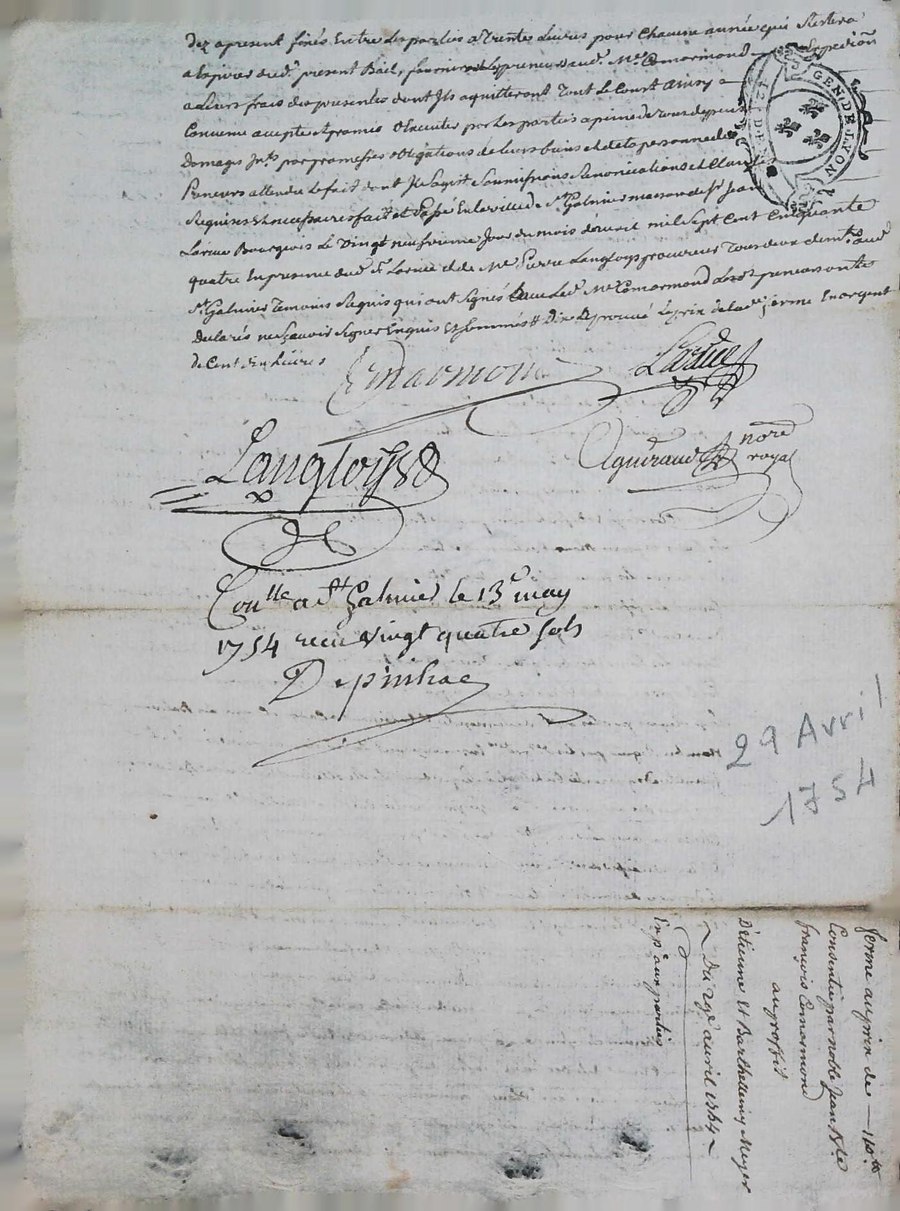 Dez apresent fixés Entre les parties a Trente Livres pour Chacune année qui Restera
a Expirer dud. present Bail, fourniront les preneurs aud. Me Commarmond Expedition
a Leurs frais des presentes dont Ils aquitteront Tout le Cont. Ainsy
Convenu accepté et promis Executer par Les parties a peine de tous depens
Domages Ints. par promesses obligations de leurs biens et de la personne des
Preneurs attendu le fait dont Il sagit Soumissions Renonciations et Clauses
Requises & necessaires fait et Passé En la ville de St. Galmier maison de Sr. Jean
Larue Bourgeois Le Vingt neufvieme Jour du mois d'avril mil Sept Cent Cinquante
quatre En presence dud. Sr. Larue et de Me. Pierre Langloys procureur Tous deux demts. aud.
St. Galmier Temoins Requis qui ont Signés avec Led. Me. Comarmond Les preneurs ont
Declarés ne Sçavoir Signer Enquis Et Sommés Dix aprouvé le prix de lad. ferme En argent
de Cent dix Livres
Comarmond
Larue
GEN. DE LYON
Langloys
Agniraud nore
royal
Conlle a St. Galmier le 13e may
1754 receu vingt quatre sols
Depinhac
29 Avril
1754
ferme au prix de — 110 ll
Consentie par noble Jean Bte
françois Commarmond
au proffit
D'étienne Et Barthelemy Meyer
Du 29e avril 1754
Exp. aux parties